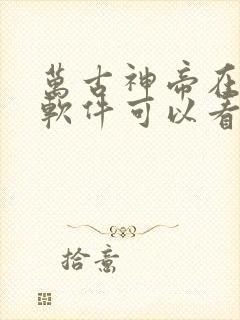 萬古神帝在
軟件可以看
拾意